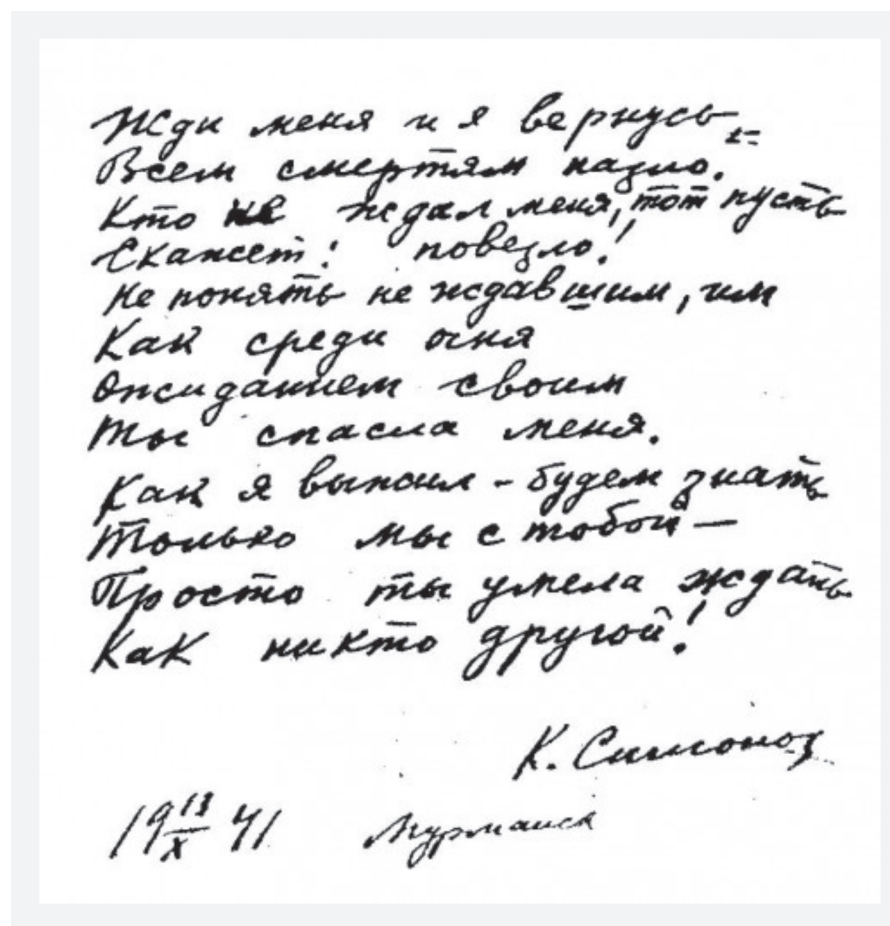 Жди меня и я вернусь
Всем смертям назло.
Кто не ждал меня, тот пусть
Скажет: повезло!
Не понять не ждавшим, им
Как среди огня
Ожиданием своим
Ты спасла меня.
Как я выжил - будем знать
Только мы с тобой —
Просто ты умела ждать
Как никто другой!
К. Симонов
19 13/X 41 Мурманск